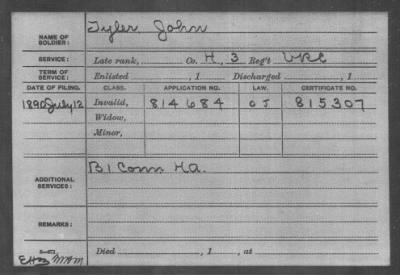 NAME OF SOLDIER: Tyler John
SERVICE: Late rank, Co. H, 3 Reg't VRC
TERM OF SERVICE: Enlisted , 1 Discharged , 1
DATE OF FILING. CLASS. APPLICATION NO. LAW. CERTIFICATE NO.
1890 July 12 Invalid, 814684 815307
Widow,
Minor,
ADDITIONAL SERVICES: B 1 Conn H.A.
REMARKS:
Died , 1 , at